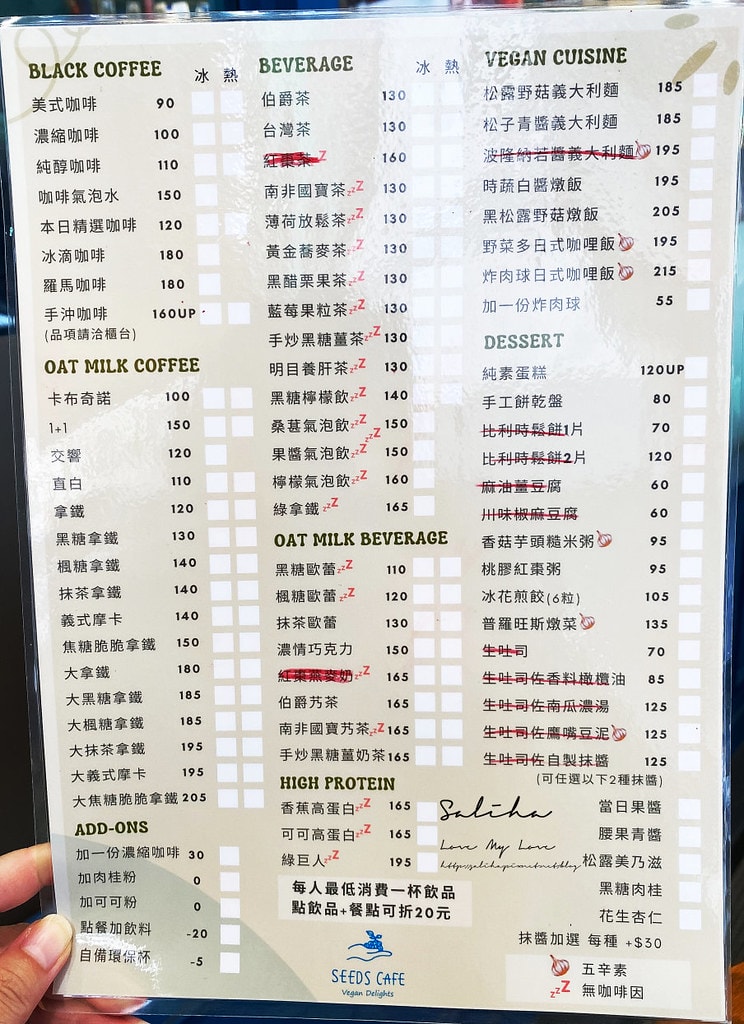 BLACK COFFEE 冰 熱
美式咖啡 90
濃縮咖啡 100
純醇咖啡 110
咖啡氣泡水 150
本日精選咖啡 120
冰滴咖啡 180
羅馬咖啡 180
手沖咖啡 160UP
(品項請洽櫃台)
OAT MILK COFFEE
卡布奇諾 100
1+1 150
交響 120
直白 110
拿鐵 120
黑糖拿鐵 130
楓糖拿鐵 140
抹茶拿鐵 140
義式摩卡 140
焦糖脆脆拿鐵 150
大拿鐵 180
大黑糖拿鐵 185
大楓糖拿鐵 185
大抹茶拿鐵 195
大義式摩卡 195
大焦糖脆脆拿鐵 205
ADD-ONS
加一份濃縮咖啡 30
加肉桂粉 0
加可可粉 0
點餐加飲料 -20
自備環保杯 -5
BEVERAGE 冰 熱
伯爵茶 130
台灣茶 130
紅棗茶zzZ 160
南非國寶茶zzZ 130
薄荷放鬆茶zzZ 130
黃金蕎麥茶zzZ 130
黑醋栗果茶zzZ 130
藍莓果粒茶zzZ 130
手炒黑糖薑茶zzZ 130
明目養肝茶zzZ 130
黑糖檸檬飲zzZ 140
桑葚氣泡飲zzZ 150
果醬氣泡飲zzZ 150
檸檬氣泡飲zzZ 160
綠拿鐵zzZ 165
OAT MILK BEVERAGE
黑糖歐蕾zzZ 110
楓糖歐蕾zzZ 120
抹茶歐蕾 130
濃情巧克力 150
紅棗燕麥奶zzZ 165
伯爵艿茶 165
南非國寶艿茶zzZ 165
手炒黑糖薑奶茶 165
HIGH PROTEIN
香蕉高蛋白zzZ 165
可可高蛋白zzZ 165
綠巨人zzZ 195
每人最低消費一杯飲品
點飲品+餐點可折20元
SEEDS CAFE
Vegan Delights
VEGAN CUISINE
松露野菇義大利麵 185
松子青醬義大利麵 185
波隆納若醬義大利麵 195
時蔬白醬燉飯 195
黑松露野菇燉飯 205
野菜多日式咖哩飯 195
炸肉球日式咖哩飯 215
加一份炸肉球 55
DESSERT
純素蛋糕 120UP
手工餅乾盤 80
比利時鬆餅1片 70
比利時鬆餅2片 120
麻油薑豆腐 60
川味椒麻豆腐 60
香菇芋頭糙米粥 95
桃膠紅棗粥 95
冰花煎餃(6粒) 105
普羅旺斯燉菜 135
生吐司 70
生吐司佐香料橄欖油 85
生吐司佐南瓜濃湯 125
生吐司佐鷹嘴豆泥 125
生吐司佐自製抹醬 125
(可任選以下2種抹醬)
Saliha
Love My Love
當日果醬
腰果青醬
松露美乃滋
黑糖肉桂
花生杏仁
抹醬加選 每種 +$30
五辛素
zzZ 無咖啡因